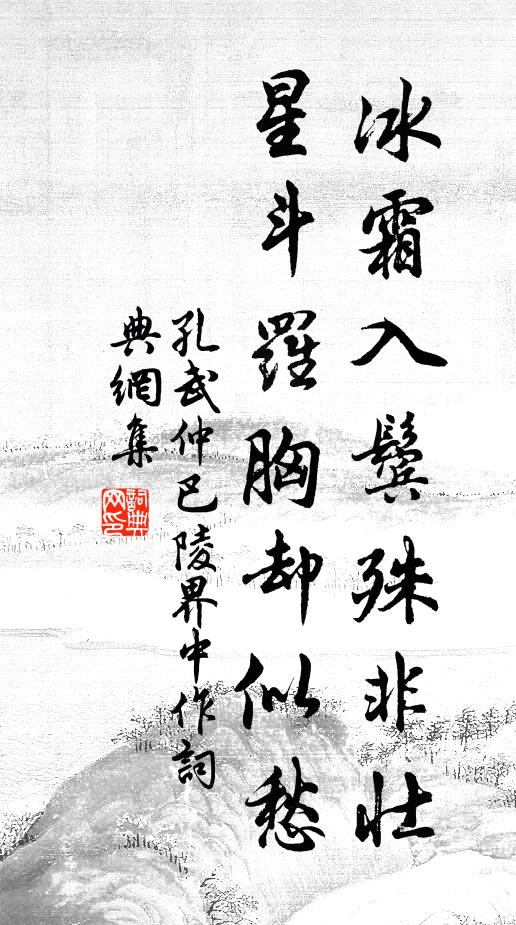 冰霜入鬢殊非壯
星斗羅胸却似愁
孔武仲巴陵界中作詞
典網集
詞典網印